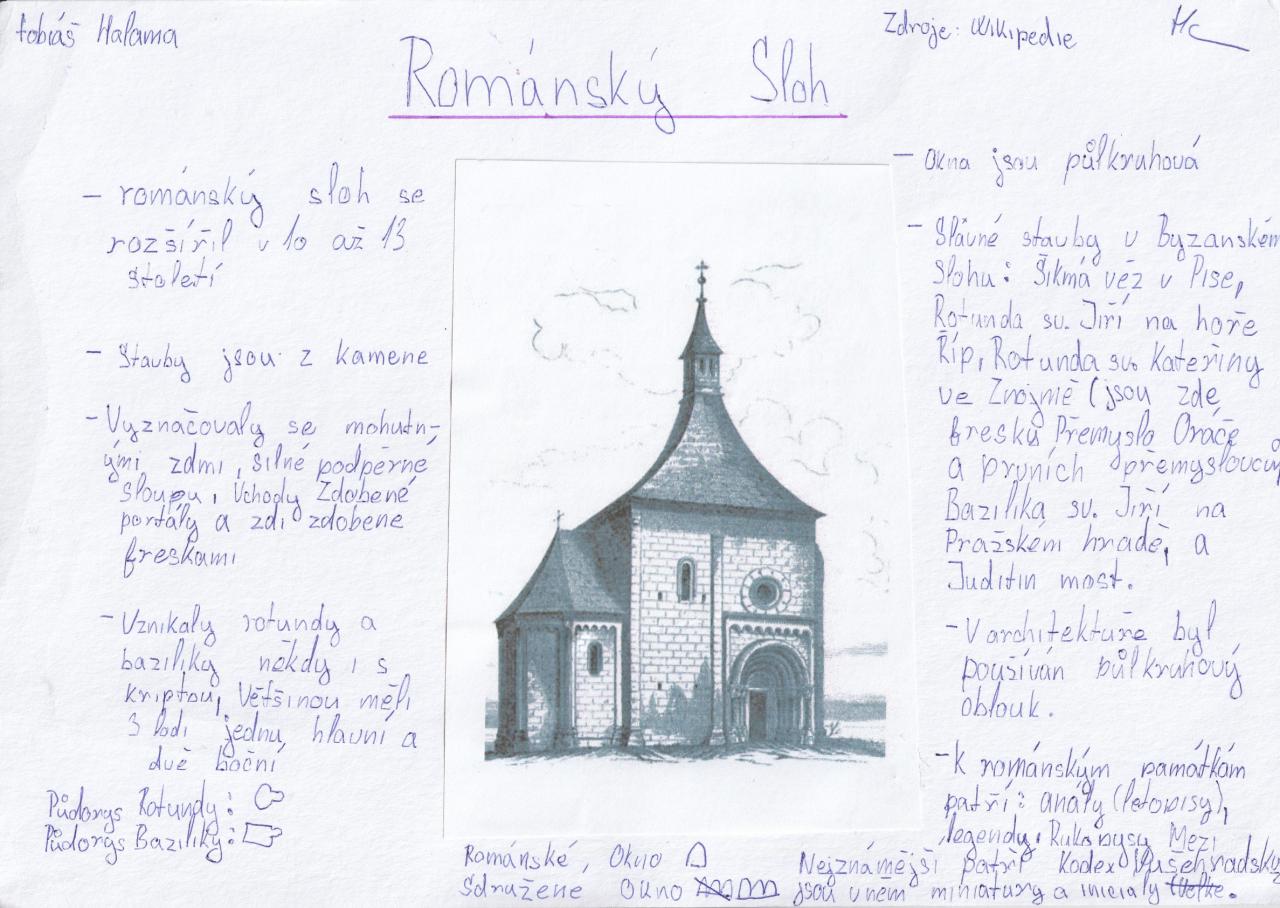 tobiáš Halama
Zdroje: Wikipedie
Románský Sloh
- románský sloh se
rozšířil v 10 až 13
století
- Stavby jsou z kamene
- Vyznačovaly se mohutn-
ými zdmi, silné podpěrné
sloupy, Vchody Zdobené
portály a zdi zdobene
freskami
- Vznikaly rotundy a
baziliky někdy i s
kriptou, Většinou měli
3 lodi jednu hlavní a
dvě boční
Půdorys Rotundy:
Půdorys Baziliky:
- Okna jsou půlkruhová
- Slavné stavby v Byzanském
Slohu: Šikmá věž v Pise,
Rotunda sv. Jiří na hoře
Říp, Rotunda sv. Kateřiny
ve Znojmě (jsou zde
fresky Přemysla Oráče
a prvních přemyslovců,
Bazilika sv. Jiří na
Pražském hradě, a
Juditin most.
- V architektuře byl
používán půlkruhový
oblouk.
- K románským památkám
patří: anály (letopisy),
legendy, Rukopysy Mezi
Nejznámější patří Kodex Vyšehradský
jsou v něm miniatury a inicialy
Románské, Okno
Sdružene Okno